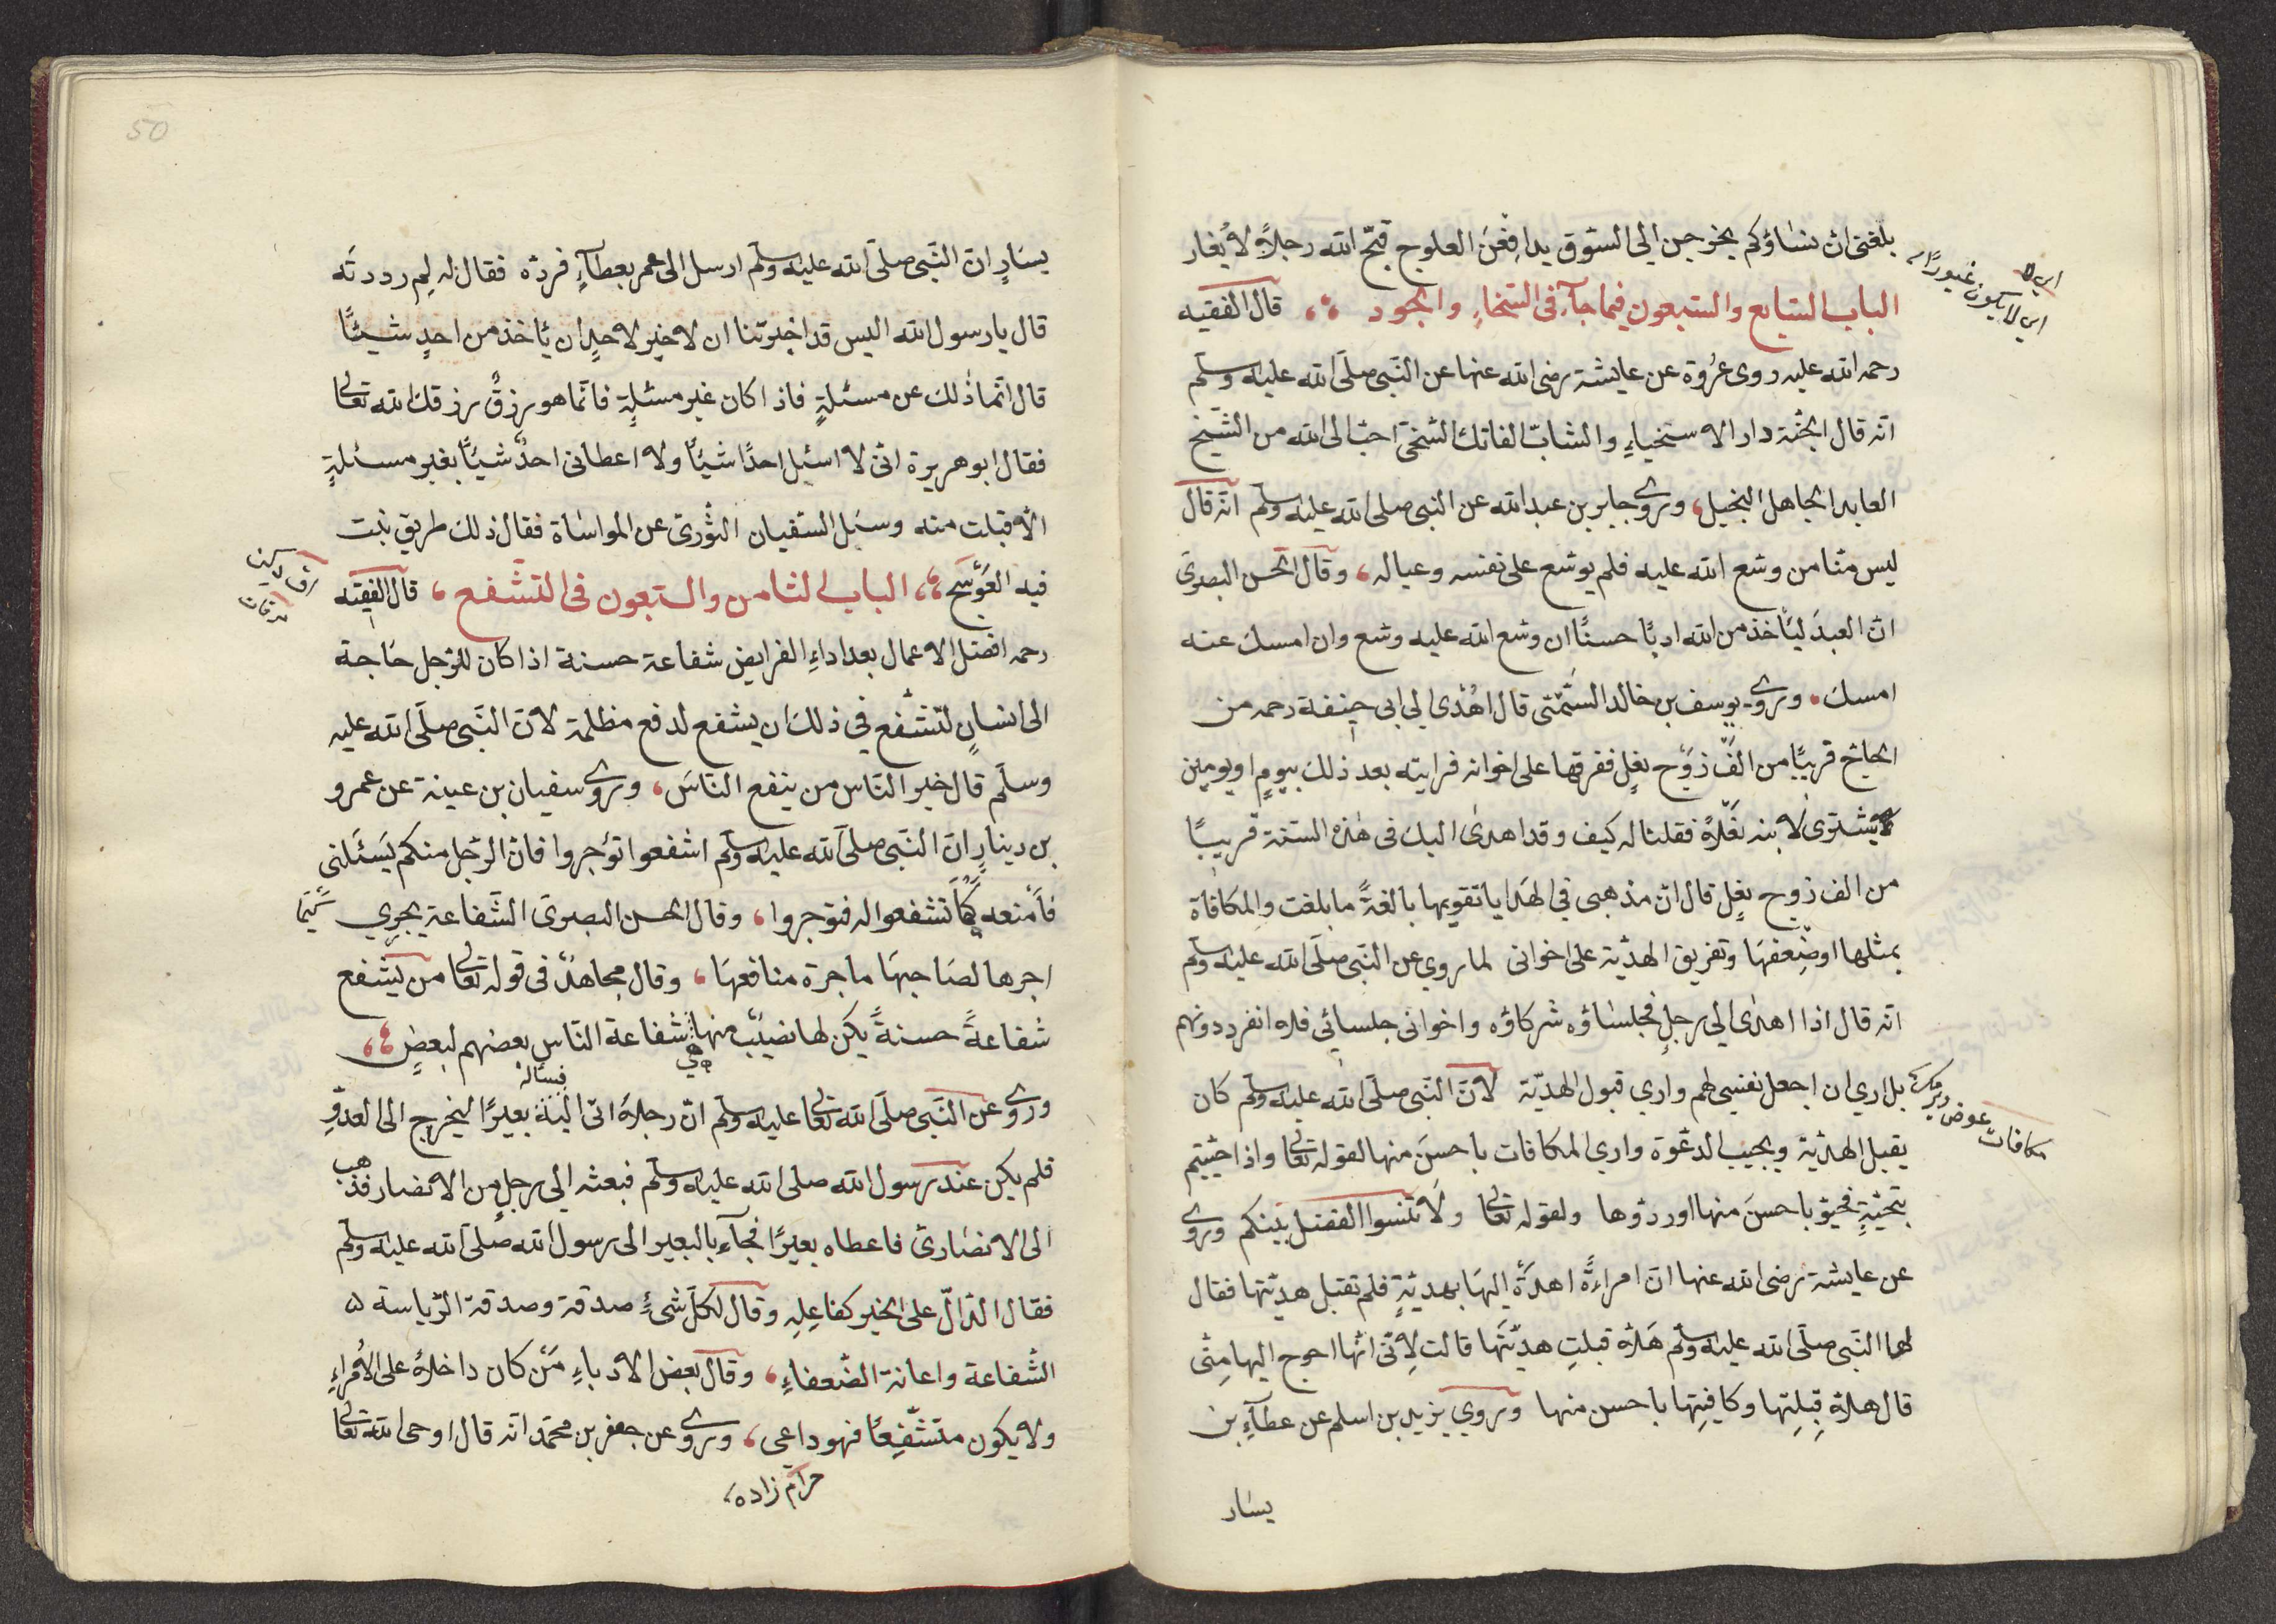 بلغنى ان نساؤكم يخرجن الى السّوق يدافِعْنَ العلوج قبّح الله رجلاً لا يُغار
اى لا
اى لا يكون غيورًا
الباب السّابع والسّبعون فيما جآء فى السّخاءِ والجود ، قال الفقيه
رحمه الله عليه روى عُرْوة عن عايشة رضى الله عنها عن النّبى صلّى الله عليه وسلّم
انّه قال الجنّة دار الاسخياءِ والشابّ الفاتك السّخىّ احبّ الى الله من الشّيخ
العابد الجاهل البخيل، وروى جابر بن عبد الله عن النبى صلى الله عليه وسلّم انّه قال
ليس منّا من وسّع الله عليه فلم يوسّع على نفسه وعياله، وقال الحسن البصرىّ
انّ العبدَ ليأخذ من الله ادبًا حسنًا ان وسّع الله عليه وسّع وان امسك عنه
امسك. وروى يوسف بن خالد السَّمْتى قال اُهْدى الى ابى حنيفة رحمه من
الحاجّ قريبًا من الف زَوْج نعلٍ ففرقها على اخوانه فرايته بعد ذلك بيومٍ او يومين
يشترى لابنه نعْلاً فقلنا له كيف وقد اهدى اليك فى هذه السّنة قريبًا
من الف زوج نعلٍ قال انّ مذهبى فى الهَدايا تقويمها بالغةً ما بلغت والمكافاة
بمثلها او ضِعفهَا وتفريق الهديّة على اخوانى لما روى عن النّبى صلّى الله عليه وسلّم
انّه قال اذا اهدى الى رجلٍ فجلساؤه شركاؤه واخوانى جلسائى فلا انفرد دونهم
بل ارى ان اجعل نفسى لهم وارى قبول الهديّة لانّ النّبى صلّى الله عليه وسلّم كان
مكافات عوض ويرمك
يقبل الهديّة ويجيب الدعْوة وارى المكافات باحسنَ منها لقوله تعالى واذا حيّيتم
بتحيّةٍ فحيّو باحسنَ منها او ردّوها ولقوله تعالى ولا تنسوا الفضل بينكم وروى
عن عايشة رضى الله عنها انّ امراةً اهدَةْ اليهَا بهديّةٍ فلم تقبل هديّتها فقال
لها النّبى صلّى الله عليه وسلّم هَلاّ قبلتِ هديّتَها قالت لاِنّى انّها احوج اليها مِنّى
قال هلاّ قبِلتِها وكافيتِها باحسن منها وروى يزيد بن اسلم عن عطآءِ بن
يسار
50
يسَارٍ انّ النّبى صلّى الله عليه وسلّم ارسل الى عمر بعطآءٍ فردّه فقال له لِم رددتَه
قال يا رسول الله اليس قد اخبرتنا ان لا خير لاحدٍ ان يأخذ من احدٍ شيئًا
قال انّما ذلك عن مسئلةٍ فاذا كان غير مسئلةٍ فانّما هو رزقٌ رزقك الله تعالى
فقال ابو هريرة انّى لا اسئل احدًا شيئًا ولا اعطانى احدٌ شيئًا بغير مسئلةٍ
الاّ قبلت منه وسئل السفيان الثّورىّ عن المواساة فقال ذلك طريق نبت
فيه العَوْسَج، الباب الثامن والسّبعون فى التشفع ، قال الفقيه
رحمه افضل الاعمال بعد اداءِ الفرايض شفاعة حسنة اذا كان للرّجل حَاجة
الى انسانٍ لتشفع فى ذلك ان يشفع لدفع مظلمة لانّ النّبى صلّى الله عليه
وسلّم قال خير النّاس من ينفع النّاسَ، وروى سفيان بن عينة عن عمرو
بن دينارٍ انّ النّبى صلّى الله عليه وسلّم اشفعوا تؤجروا فانّ الرّجل منكم يَسئلنى
فاَمْنعه كَما تشفعوا له فتوجروا، وقال الحسن البصرىّ الشّفاعة يجرى
اجرها لصَاحبهَا ما جرة منافعهَا، وقال مجاهدٌ فى قوله تعالى من يشفع
شفاعةً حسنةً يكن لها نصيبٌ منها هى شفاعة النّاس بعضهم لبعضٍ ،
وروى عن النّبى صلّى الله تعالى عليه وسلّم انّ رجلاً اتى اليه فسأله بعيرًا ليخرج الى العدوِّ
فلم يكن عند رسول الله صلى الله عليه وسلّم فبعثه الى رجلٍ من الانصار فذهب
الى الانصارىّ فاعطاه بعيرًا فجآء بالبعير الى رسول الله صلّى الله عليه وسلّم
فقال الدّالّ على الخير كفاعِلِه وقال لكلّ شئٍ صدقة وصدقة الرّياسة
الشّفاعة واعانة الضّعفاءِ، وقال بعض الادباءِ مَنْ كان داخلاً على الاُمراءِ
ولا يكون متشفّعًا فهو داعى، وروى عن جعفر بن محمّد انّه قال اوحى الله تعالى
حرام زاده